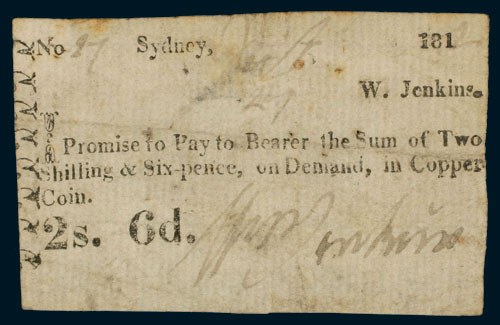 No 27 Sydney, 181
W. Jenkins.
I Promise to Pay to Bearer the Sum of Two
Shilling & Six-pence, on Demand, in Copper
Coin.
2s. 6d.